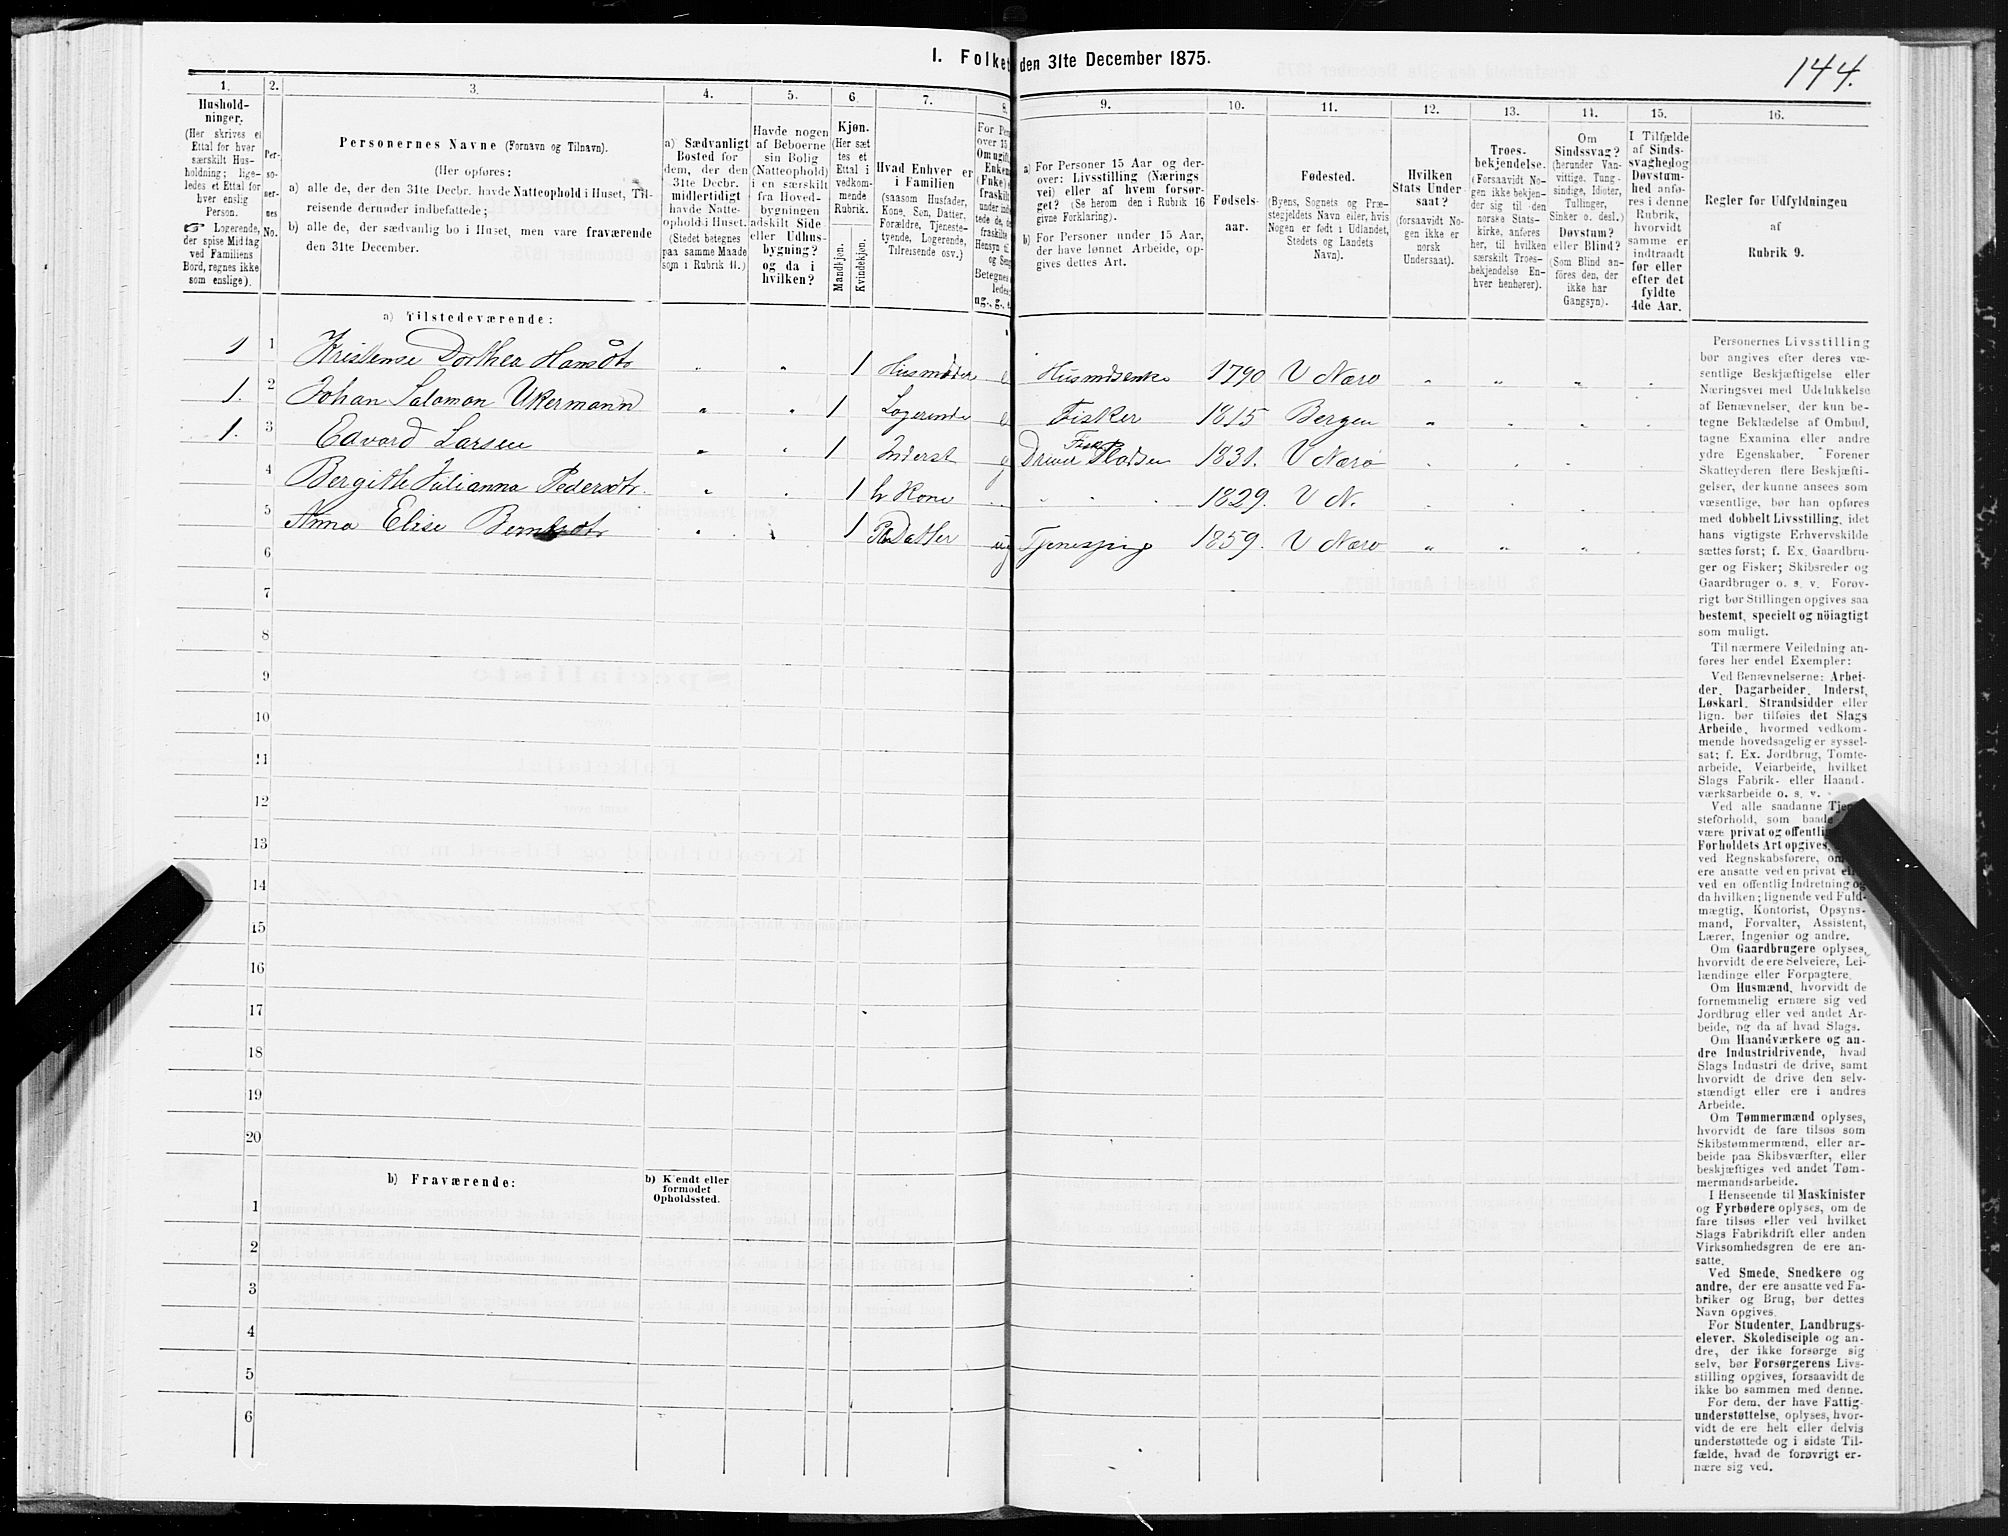 1. Folket den 31te December 1875.
144.
1. 2. 3. 4. 5. 6. 7. 8. 9. 10. 11. 12. 13. 14. 15. 16.
Hushold-
ninger.
(Her skrives et
Ettal for hver
særskilt Hus-
holdning; lige-
ledes et Ettal for
hver enslig
Person.
☞ Logerende,
der spise Middag
ved Familiens
Bord, regnes ikke
som enslige).
Per-
so-
ner-
nes
No.
Personernes Navne (Fornavn og Tilnavn).
(Her opføres:
a) alle de, der den 31te Decbr. havde Natteophold i Huset, Til-
reisende derunder indbefattede;
b) alle de, der sædvanlig bo i Huset, men vare fraværende
den 31te December.
a) Sædvanligt
Bosted for
dem, der den
31te Decbr.
midlertidigt
havde Natte-
ophold i Huset.
(Stedet betegnes
paa samme Maade
som i Rubrik 11.)
Havde nogen
af Beboerne
sin Bolig
(Natteophold)
i en særskilt
fra Hoved-
bygningen
adskilt Side
eller Udhus-
bygning?
og da i
hvilken?
Kjøn.
(Her sæt
tes et
Ettal i
vedkom-
mende
Rubrik.
Mandkjøn.
Kvindekjøn.
Hvad Enhver er
i Familien
(saasom Husfader,
Kone, Søn, Datter,
Forældre, Tjeneste-
tyende, Logerende,
Tilreisende osv.)
For Per
over 15
Om ugift,
Enkem
(Fnke)
fraskilt
ug., g.,
a) For Personer 15 Aar og der-
over: Livsstilling (Nærings
vei) eller af hvem forsør-
get? (Se herom den i Rubrik 16
givne Forklaring).
b) For Personer under 15 Aar,
der have lønnet Arbeide, op-
gives dettes Art.
Fødsels-
aar.
Fødested.
(Byens, Sognets og Præ-
stegjeldets Navn eller, hvis
Nogen er født i Udlandet,
Stedets og Landets
Navn).
Hvilken
Stats Under-
saat?
(forsaavidt No-
gen ikke er
norsk
Undersaat).
Troes-
bekjendelse.
(Forsaavidt No-
gen ikke bekjen-
der sig til den
norske Stats-
kirke, anføres
her, til hvilken
særskilt Troes-
bekjendelse En-
hver henhører).
Om
Sindssvag?
(herunder Van-
vittige, Tung-
sindige, Idioter,
Tullinger,
Sinker o. desl.)
Døvstum?
eller Blind?
(Som Blind an-
føres den, der
ikke har
Gangsyn).
I Tilfælde
af Sinds-
svaghed og
Døvstum-
hed anfø-
res i denne
Rubrik,
hvorvidt
samme er
indtraadt
før eller
efter det
fyldte
4de Aar.
Regler for Udfyldningen
af
Rubrik 9.
a) Tilstedeværende:
1 1 Kristense Dorthea Hansdtr " " 1 Husmoder e Husmdsenke 1790 V Nærø " " " "
1. 2 Johan Salomon Ukermann " " 1 Logerende e Fisker 1815 Bergen " " " "
1. 3 Edvard Larsen " " 1 Inderst g Driver Fisk Pladsen 1831. V Nærø
4 Bergitte Julianna Pedersdtr. " " 1 h Kone " " " 1829. V N.
5 Anna Elise Berntsdtr " " 1 Pl Datter ug Tjenespig 1859. V Nærø " " " "
6
7
8
9
10
11
12
13
14
15
16
17
18
19
20
b) Fraværende:
b) Kjendt eller
formodet
Opholdssted.
1
2
3
4
5
6
Personernes Livsstilling
bør angives efter deres væ-
sentlige Beskjæftigelse eller
Næringsvei med Udelukkelse
af Benævnelser, der kun be-
tegne Beklædelse af Ombud,
tagne Examina eller andre
ydre Egenskaber. Forener
Skatteyderen flere Beskjæfti-
gelser, der kunne ansees som
væsentlige, bør han opføres
med dobbelt Livsstilling, idet
hans vigtigste Erhvervskilde
sættes først; f. Ex. Gaardbru-
ger og Fisker; Skibsreder og
Gaardbruger o. s. v. Forøv-
rigt bør Stillingen opgives saa
bestemt, specielt og nöiagtigt
som muligt.
Til nærmere Veiledning an-
føres her endel Exempler:
Ved Benævnelserne: Arbei-
der, Dagarbeider, Inderst,
Løskarl, Strandsidder eller
lign. bør tilføies det Slags
Arbeide, hvormed vedkom-
mende hovedsagelig er syssel-
sat; f. Ex. Jordbrug, Tomte-
arbeide, Veiarbeide, hvilket
Slags Fabrik- eller Haand-
værksarbeide o. s. v.
Ved alle saadanne Tjene-
steforhold, som baade
være privat og offentlig
Forholdets Art opgives,
ved Regnskabsførere, om
ere ansatte ved en privat eller
ved en offentlig Indretning og
da hvilken; lignende ved Fuld-
mægtig, Kontorist, Opsyns-
mand, Forvalter, Assistent,
Lærer, Ingeniør og andre.
Om Gaardbrugere oplyses,
hvorvidt de ere Selveiere, Lei-
lændinge eller Forpagtere.
Om Husmænd, hvorvidt de
fornemmelig ernære sig ved
Jordbrug eller ved andet Ar-
beide, og da af hvad Slags.
Om Haandværkere og an-
dre Industridrivende, hvad
Slags Industri de drive, samt
hvorvidt de drive den selv-
stændigt eller ere i andres
Arbeide.
Om Tømmermænd oplyses,
hvorvidt de fare tilsøs som
Skibstømmermænd, eller ar-
beide paa Skibsværfter, eller
beskjæftiges ved andet Tøm-
mermandsarbeide.
I Henseende til Maskinister
og Fyrbødere oplyses, om de
fare tilsøs eller ved hvilket
Slags Fabrikdrift eller anden
Virksomhedsgren de ere an-
satte.
Ved Smede, Snedkere og
andre, der ere ansatte ved Fa-
briker og Brug, bør dettes
Navn opgives.
For Studenter, Landbrugs-
elever, Skoledisciple og an-
dre, der ikke forsørge sig
selv, bør Forsørgerens Livs-
stilling opgives, forsaavidt de
ikke bo sammen med denne.
For dem, der have Fattig-
understøttelse, oplyses, hvor-
vidt de ere helt eller delvis
understøttede og i sidste Til-
fælde, hvad de forøvrigt er-
nære sig ved.